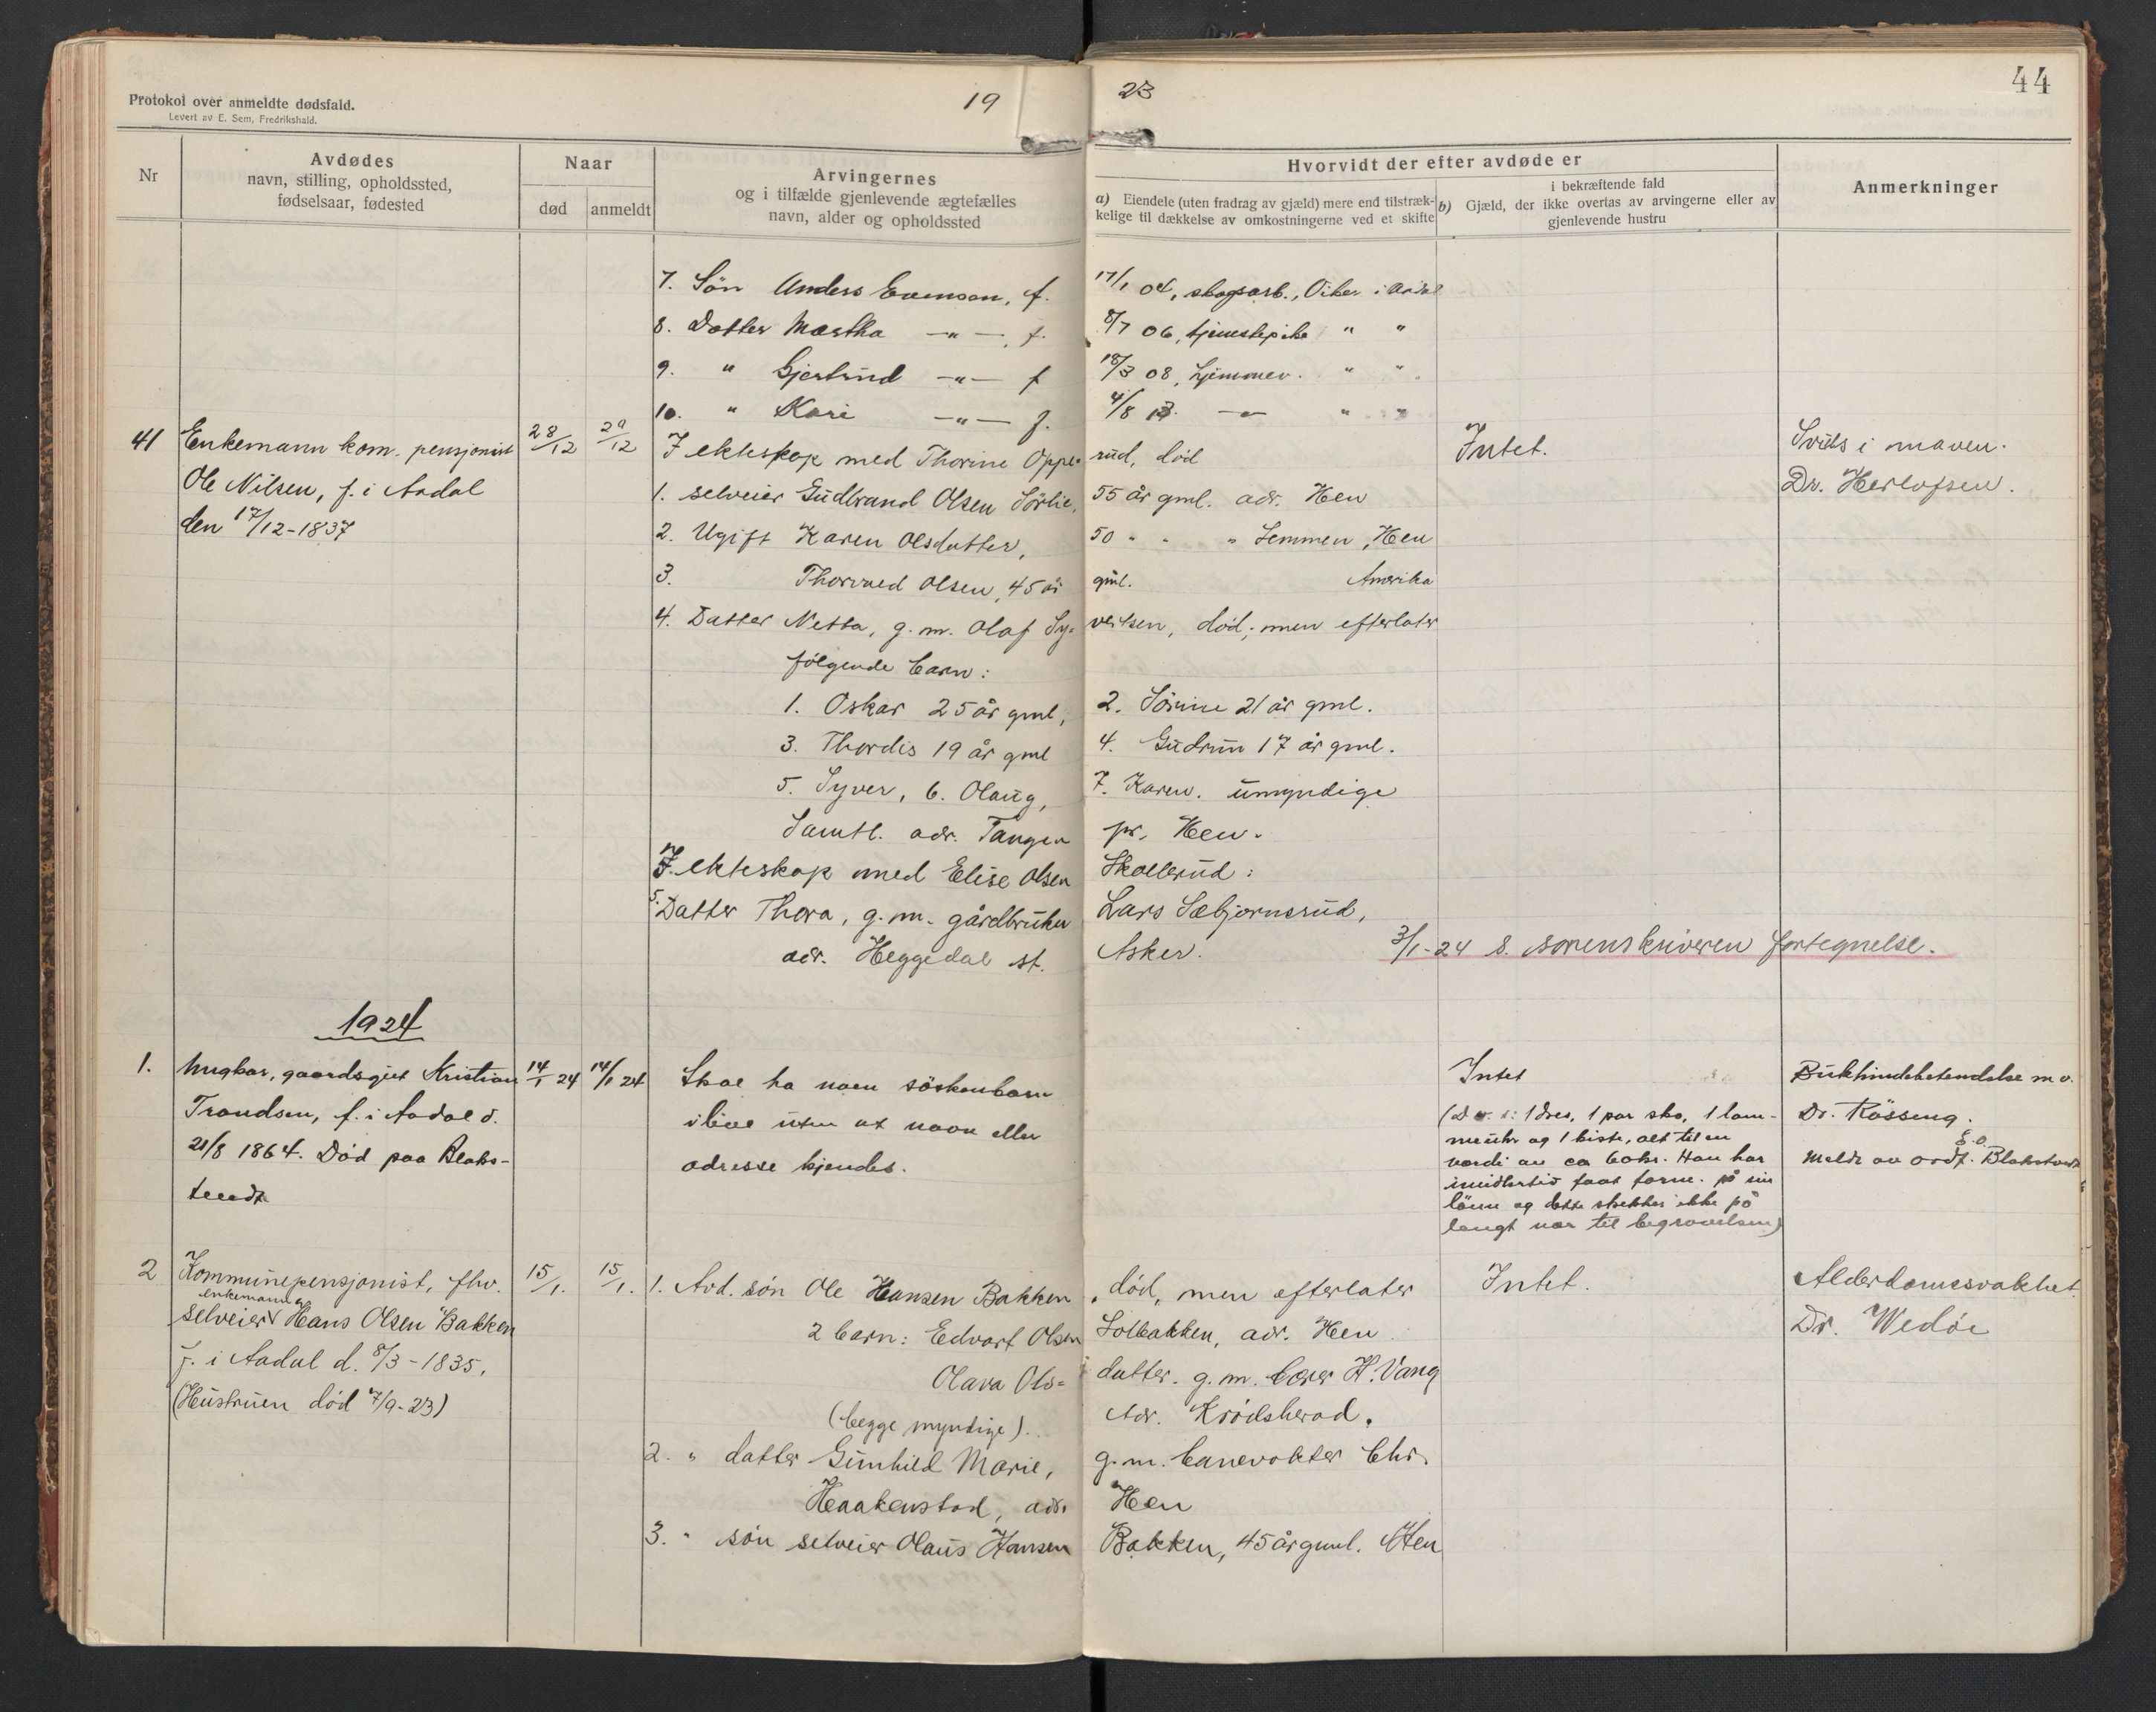 Protokol over anmeldte dødsfald.
Levert av E. Sem, Fredrikshald.
19 23
44
Nr
Avdødes
navn, stilling, opholdssted,
fødselsaar, fødested
Naar
død anmeldt
Arvingernes
og i tilfælde gjenlevende ægtefælles
navn, alder og opholdssted
Hvorvidt der efter avdøde er
a) Eiendele (uten fradrag av gjæld) mere end tilstræk-
kelige til dækkelse av omkostningerne ved et skifte
i bekræftende fald
b) Gjæld, der ikke overtas av arvingerne eller av
gjenlevende hustru
Anmerkninger
7. Søn Anders Evensen, f. 17/1 04, skogsarb., Viker i Aadal
8. Datter Martha —"—, f. 8/7 06, tjenestepike " "
9. " Gjertrud —"— f 18/3 08, hjemmev. " "
10. " Kari —"— f. 4/8 13. —"— " "
41 Enkemann kom. pensjonist 28/12 29/12 I ekteskap med Thorine Oppe= rud, død Intet. Svuls i maven.
Ole Nilsen, f. i Aadal 1. selveier Gudbrand Olsen Sørlie, 55 år gml. adr. Hen Dr. Herlofsen.
den 17/12-1837 2. Ugift Karen Olsdatter, 50 " " " Semmen, Hen
3. Thorvaed Olsen, 45 år gml. Amerika
4. Datter Netta, g. m. Olaf Sy= vertsen, død; men efterlater
følgende barn:
1. Oskar 25 år gml, 2. Sørine 21 år gml.
3. Thordis 19 år gml 4. Gudrun 17 år gml.
5. Syver, 6. Olaug, 7. Karen. umyndige
Samtl. adr. Tangen pr. Hen.
I ekteskap med Elise Olsen Skollerud:
5. Datter Thora, g. m. gårdbruker Lars Sæbjørnsrud,
adr. Heggedal st. Asker. 3/1-24 s. sorenskriveren fortegnelse.
1924
1. Ungkar, gaardsgut Kristian 14/1 24 14/1 24 Skal ha noen søskenbarn Intet Bukhindebetendelse m.v.
Trondsen, f. i Aadal d. ilive uten at navn eller (D. v. s: 1 dres, 1 par sko, 1 lom- Dr. Køsseng.
21/8 1864. Død paa Blaks- adresse kjendes. meuhr og 1 kiste, alt til en
tvedt verdi av ca 60 kr. Han har Meldt av ordf. Blakstvedt
imidlertid faat forsk. på sin
lønn og dette strekker ikke på
langt nær til begravelsen)
2 Kommunepensjonist, fhv. 15/1. 15/1. 1. Avd. søn Ole Hansen Bakken, død, men efterlater Intet. Alderdomssvakhet.
enkemann
selveier Hans Olsen Bakken 2 barn: Edvart Olsen Solbakken, adr. Hen Dr. Wedøe
f. i Aadal d. 8/3-1835. Olava Ols= datter. g. m. lærer H. Vang
(Hustruen død 7/9-23) (begge myndige). Adr. Krødsherad.
2. " datter Gunhild Marie, g. m. banevokter Chr.
Haakenstad, adr. Hen
3. " søn selveier Olaus Hansen Bakken, 45 år gml. Hen